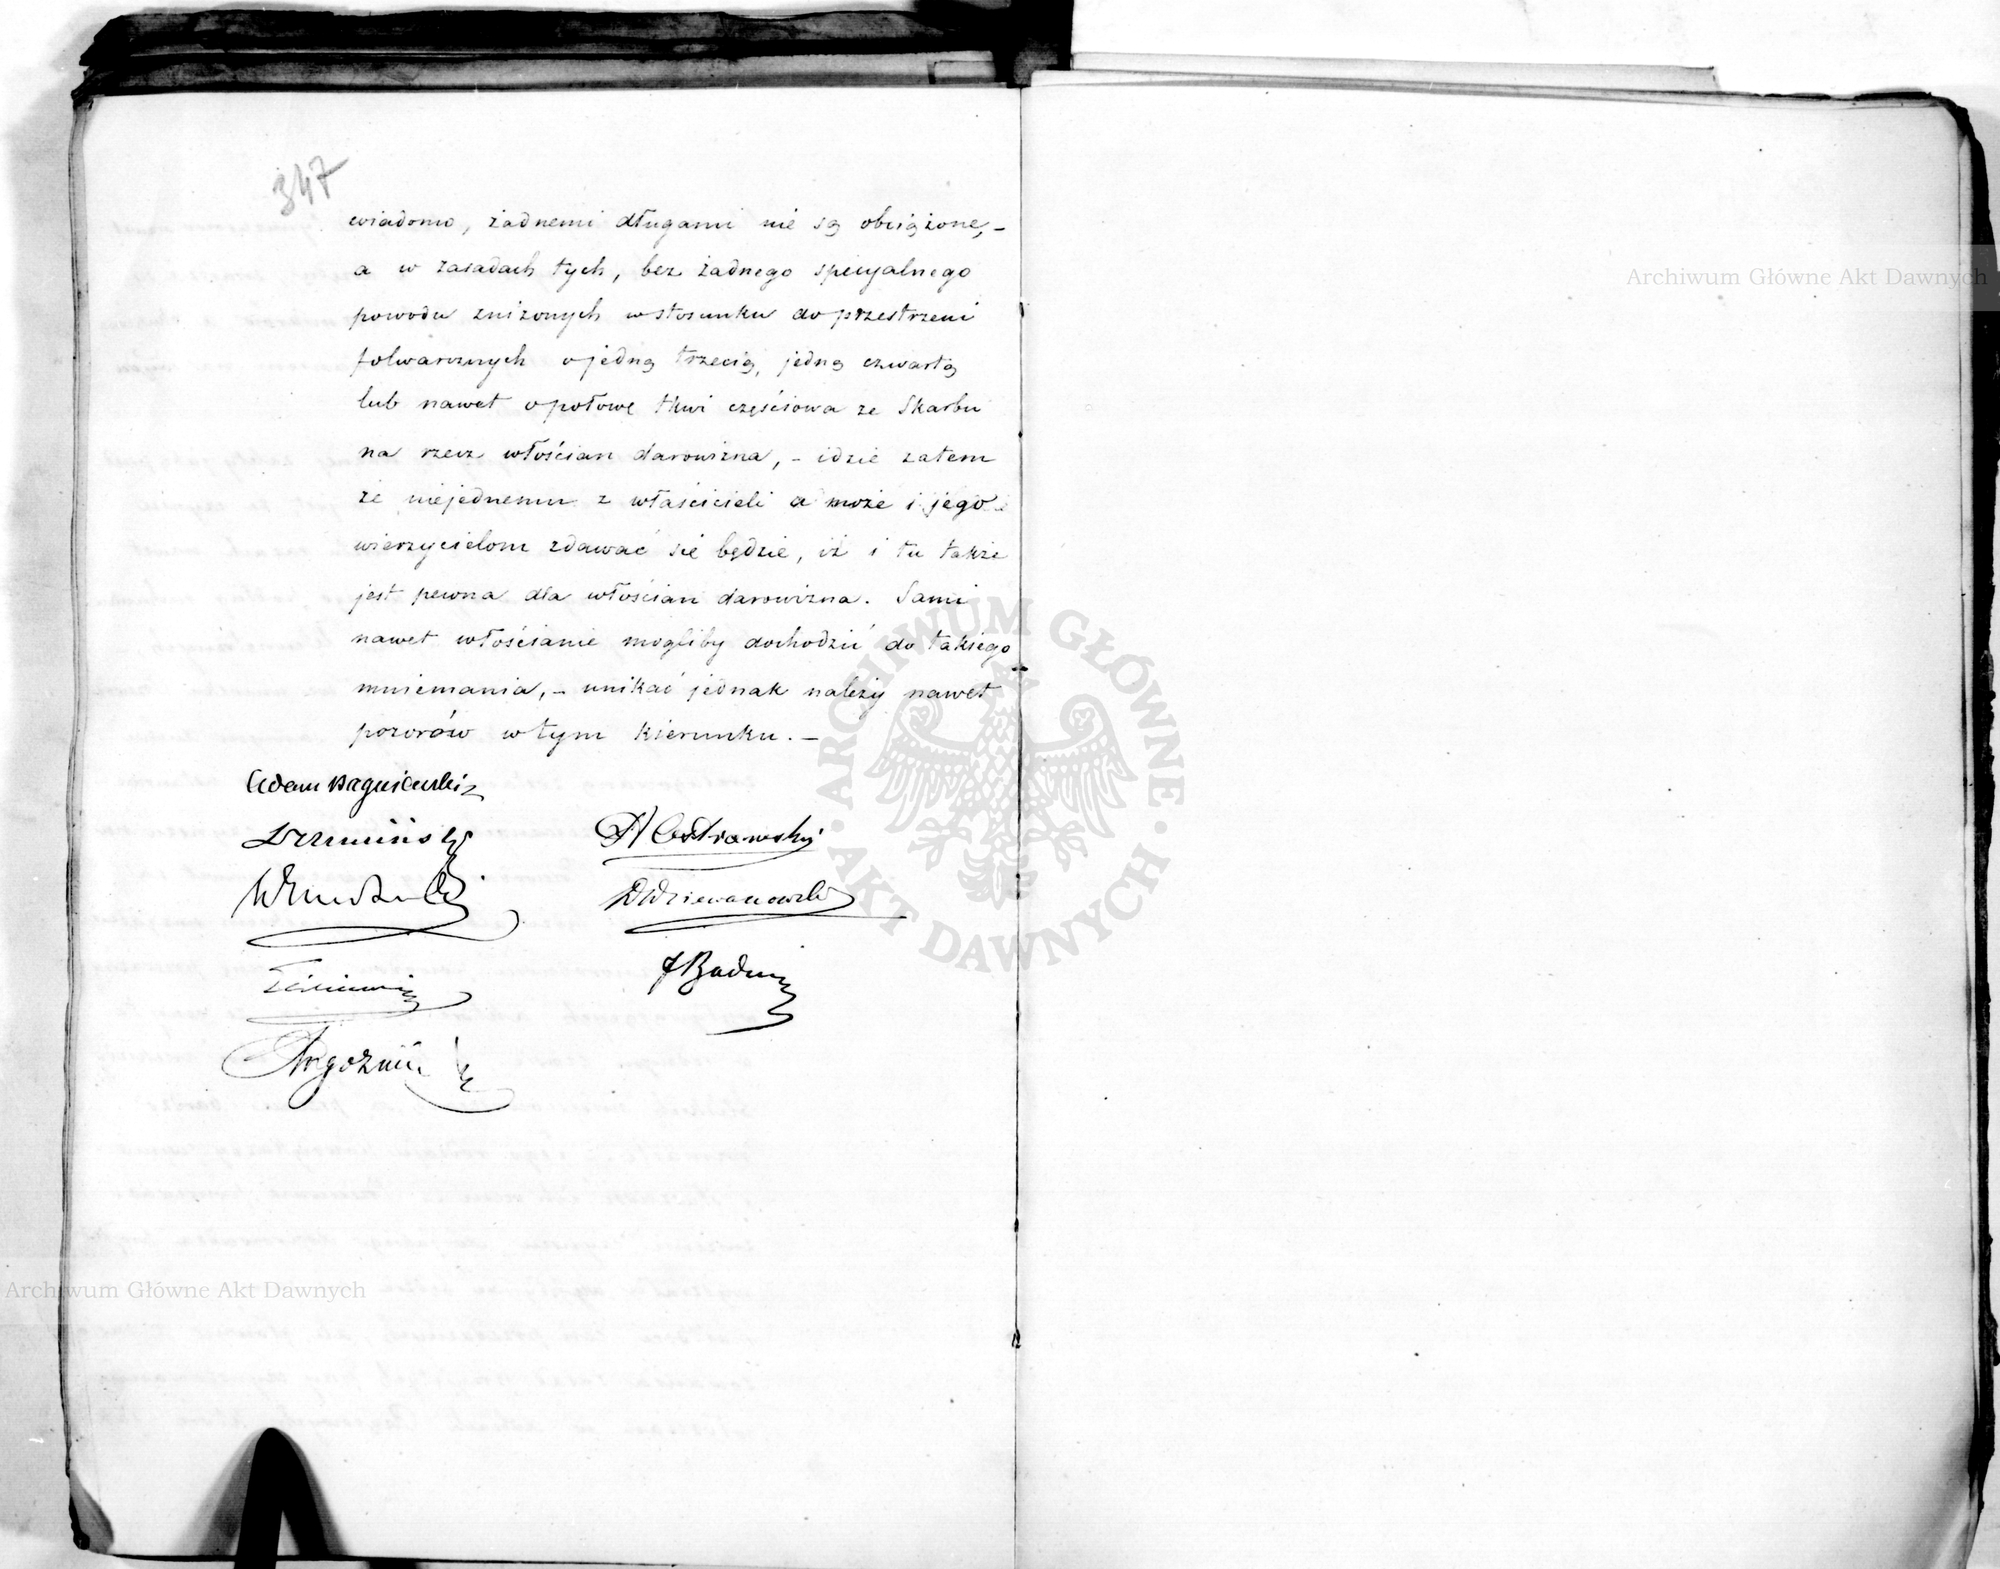 347
wiadomo, żadnemi długami nie są obciążone, –
a w zasadach tych, bez żadnego specyalnego
powodu zniżonych w stosunku do przestrzeni
folwarcznych o jedną trzecią, jedną czwartą
lub nawet o połowę tkwi częściowa ze Skarbu
na rzecz włościan darowizna, – idzie zatem
że niejednemu z właścicieli a może i jego
wierzycielom zdawać się będzie, iż i tu także
jest pewna dla włościan darowizna. Sami
nawet włościanie mogliby dochodzić do takiego
mniemania, – unikać jednak należy nawet
pozorów w tym kierunku. –
Adam
Ostrowski
Dziewanowski
JBadeni
Archiwum Główne Akt Dawnych
Archiwum Główne Akt Dawnych
ARCHIWUM GŁÓWNE · AKT DAWNYCH ·